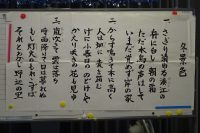 冬景色
一、さぎり消ゆる湊江の
舟に白し 朝の霜
ただ水鳥の声はして
いまだ覚めず 岸の家
二、からす啼きて木に高く
人は畑に麦を踏む
げに小春日ののどけしや
かえり咲きの花も見ゆ
三、嵐吹きて 雲は落ち
時雨降りて日は暮れぬ
もし灯火のもれこずば
それとわかじ 野辺の里